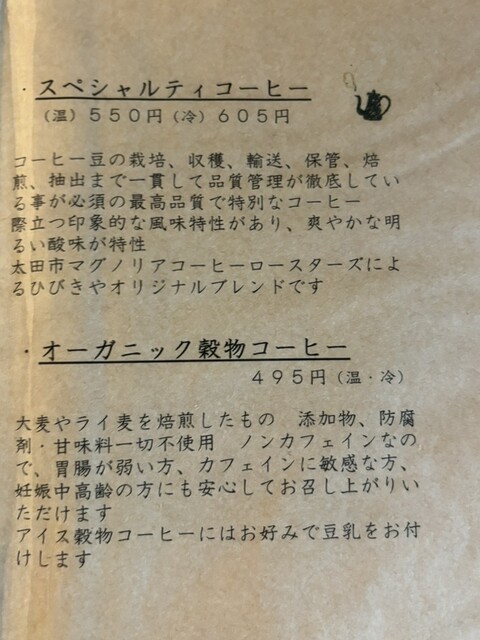 ・スペシャルティコーヒー
（温）５５０円（冷）６０５円
コーヒー豆の栽培、収穫、輸送、保管、焙
煎、抽出まで一貫して品質管理が徹底してい
る事が必須の最高品質で特別なコーヒー
際立つ印象的な風味特性があり、爽やかな明
るい酸味が特性
太田市マグノリアコーヒーロースターズによ
るひびきやオリジナルブレンドです
・オーガニック穀物コーヒー
４９５円（温・冷）
大麦やライ麦を焙煎したもの　添加物、防腐
剤・甘味料一切不使用　ノンカフェインなの
で、胃腸が弱い方、カフェインに敏感な方、
妊娠中高齢の方にも安心してお召し上がりい
ただけます
アイス穀物コーヒーにはお好みで豆乳をお付
けします